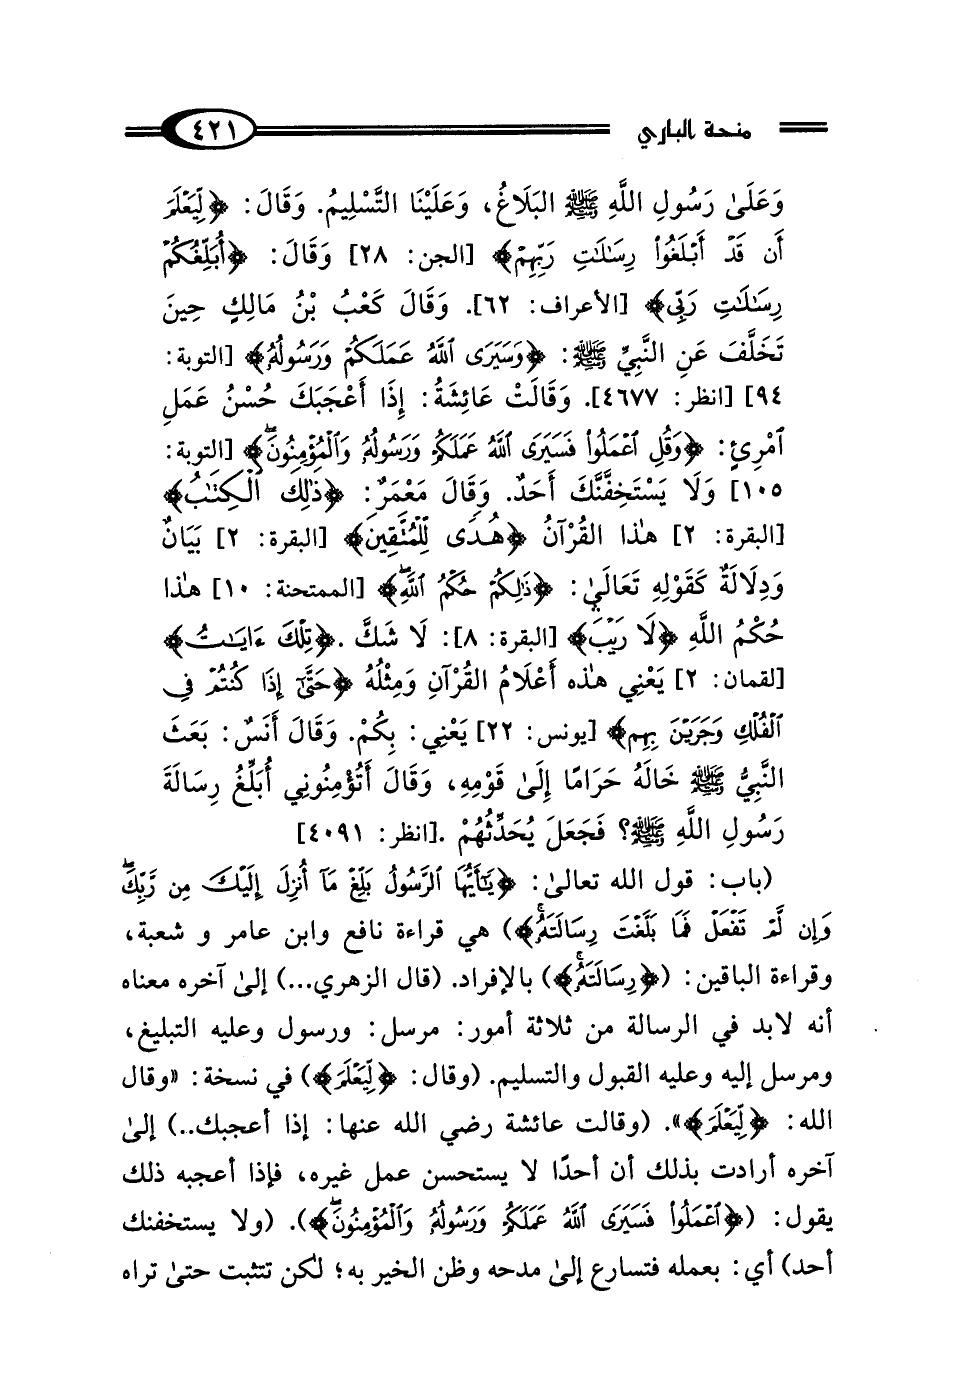 منحة الباري ٤٢١
وَعَلَىٰ رَسُولِ اللَّهِ ﷺ البَلَاغُ، وَعَلَيْنَا التَّسْلِيمُ. وَقَالَ: ﴿لِّيَعْلَمَ
أَن قَدْ أَبْلَغُواْ رِسَٰلَٰتِ رَبِّهِمْ﴾ [الجن: ٢٨] وَقَالَ: ﴿أُبَلِّغُكُمْ
رِسَٰلَٰتِ رَبِّى﴾ [الأعراف: ٦٢]. وَقَالَ كَعْبُ بْنُ مَالِكٍ حِينَ
تَخَلَّفَ عَنِ النَّبِيِّ ﷺ: ﴿وَسَيَرَى ٱللَّهُ عَمَلَكُمْ وَرَسُولُهُۥ﴾ [التوبة:
٩٤] [انظر: ٤٦٧٧]. وَقَالَتْ عَائِشَةُ: إِذَا أَعْجَبَكَ حُسْنُ عَمَلِ
ٱمْرِئٍ: ﴿وَقُلِ ٱعْمَلُواْ فَسَيَرَى ٱللَّهُ عَمَلَكُمْ وَرَسُولُهُۥ وَٱلْمُؤْمِنُونَۖ﴾ [التوبة:
١٠٥] وَلَا يَسْتَخِفَّنَّكَ أَحَدٌ. وَقَالَ مَعْمَرٌ: ﴿ذَٰلِكَ ٱلْكِتَٰبُ﴾
[البقرة: ٢] هٰذا القُرْآنُ ﴿هُدًى لِّلْمُتَّقِينَ﴾ [البقرة: ٢] بَيَانٌ
وَدِلَالَةٌ كَقَوْلِهِ تَعَالَىٰ: ﴿ذَٰلِكُمْ حُكْمُ ٱللَّهِۖ﴾ [الممتحنة: ١٠] هٰذا
حُكْمُ اللَّهِ ﴿لَا رَيْبَ﴾ [البقرة: ٨]: لَا شَكَّ .﴿تِلْكَ ءَايَٰتُ﴾
[لقمان: ٢] يَعْنِي هٰذه أَعْلَامُ القُرْآنِ وَمِثْلُهُ ﴿حَتَّىٰٓ إِذَا كُنتُمْ فِى
ٱلْفُلْكِ وَجَرَيْنَ بِهِم﴾ [يونس: ٢٢] يَعْنِي: بِكُمْ. وَقَالَ أَنَسٌ: بَعَثَ
النَّبِيُّ ﷺ خَالَهُ حَرَامًا إِلَىٰ قَوْمِهِ، وَقَالَ أَتُؤْمِنُونِي أُبَلِّغُ رِسَالَةَ
رَسُولِ اللَّهِ ﷺ؟ فَجَعَلَ يُحَدِّثُهُمْ .[انظر: ٤٠٩١]
(باب: قول الله تعالىٰ: ﴿يَٰٓأَيُّهَا ٱلرَّسُولُ بَلِّغْ مَآ أُنزِلَ إِلَيْكَ مِن رَّبِّكَۖ
وَإِن لَّمْ تَفْعَلْ فَمَا بَلَّغْتَ رِسَالَتَهُۥۚ﴾) هي قراءة نافع وابن عامر و شعبة،
وقراءة الباقين: (﴿رِسَالَتَهُۥۚ﴾) بالإفراد. (قال الزهري...) إلىٰ آخره معناه
أنه لابد في الرسالة من ثلاثة أمور: مرسل: ورسول وعليه التبليغ،
ومرسل إليه وعليه القبول والتسليم. (وقال: ﴿لِّيَعْلَمَ﴾) في نسخة: «وقال
الله: ﴿لِّيَعْلَمَ﴾». (وقالت عائشة رضي الله عنها: إذا أعجبك..) إلىٰ
آخره أرادت بذلك أن أحدًا لا يستحسن عمل غيره، فإذا أعجبه ذلك
يقول: (﴿ٱعْمَلُواْ فَسَيَرَى ٱللَّهُ عَمَلَكُمْ وَرَسُولُهُۥ وَٱلْمُؤْمِنُونَۖ﴾). (ولا يستخفنك
أحد) أي: بعمله فتسارع إلىٰ مدحه وظن الخير به؛ لكن تتثبت حتىٰ تراه